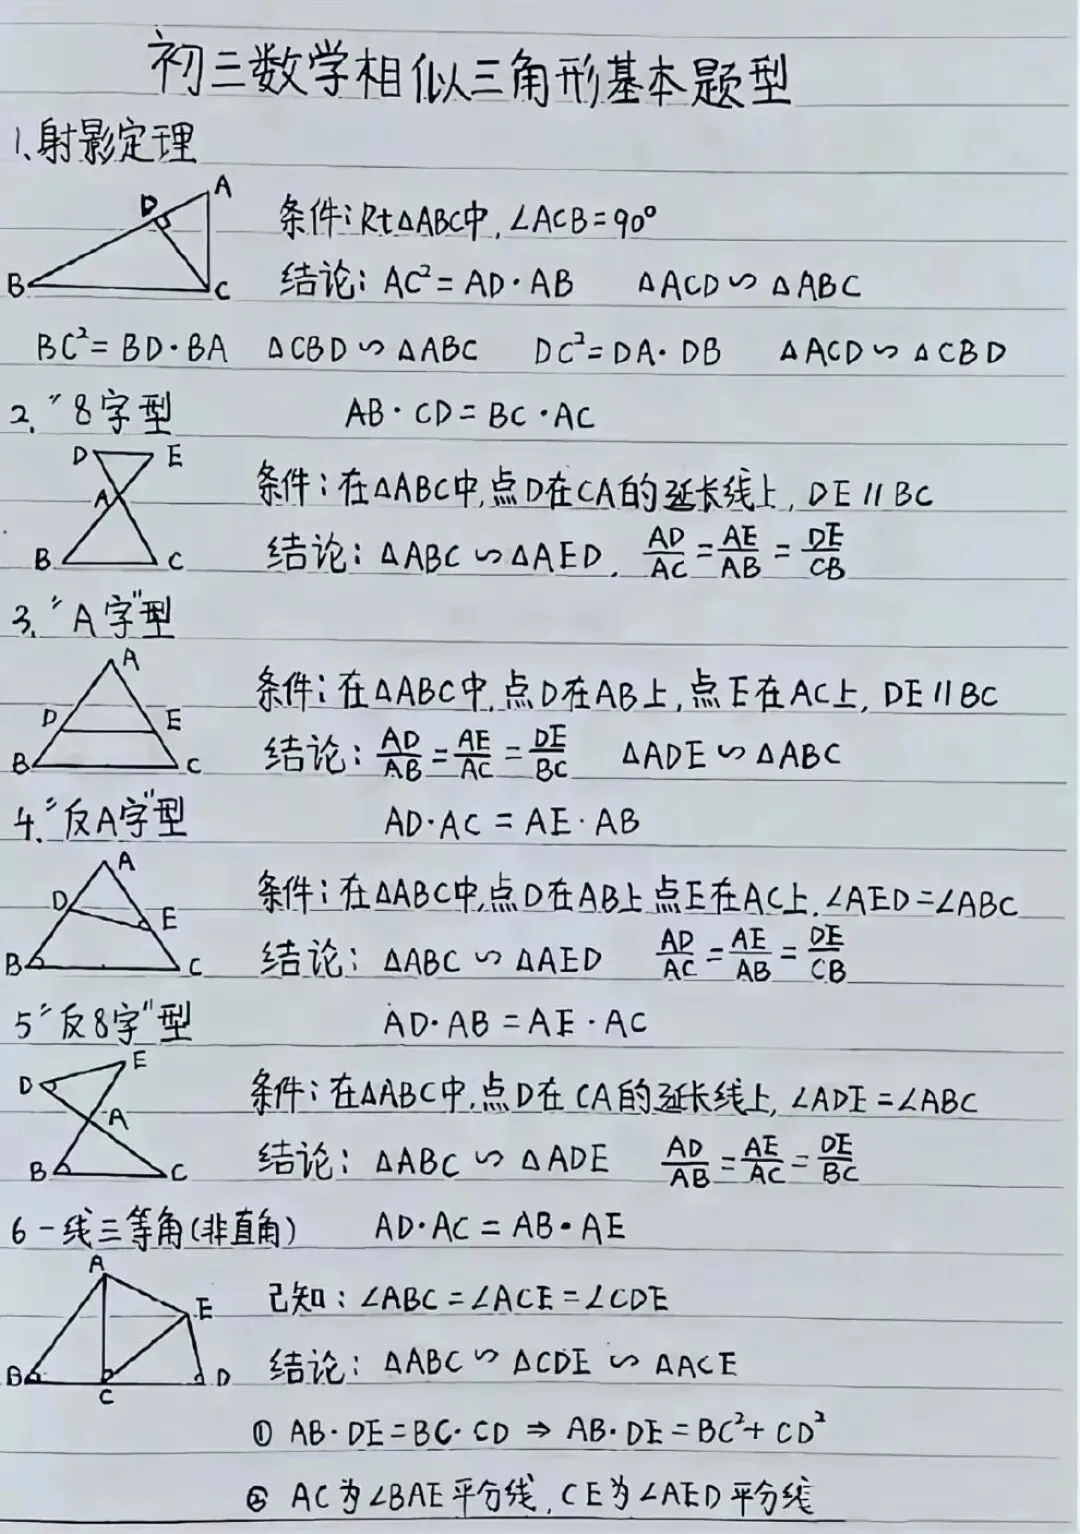 初三数学相似三角形基本题型
1、射影定理
D A
B C
条件：Rt△ABC中，∠ACB=90°
结论：AC²=AD·AB △ACD∽△ABC
BC²=BD·BA △CBD∽△ABC DC²=DA·DB △ACD∽△CBD
2."8字型 AB·CD=BC·AC
D E
A
B C
条件：在△ABC中，点D在CA的延长线上，DE∥BC
结论：△ABC∽△AED. AD/AC=AE/AB=DE/CB
3."A字"型
A
D E
B C
条件：在△ABC中，点D在AB上，点E在AC上，DE∥BC
结论：AD/AB=AE/AC=DE/BC △ADE∽△ABC
4."反A字"型 AD·AC=AE·AB
A
D E
B C
条件：在△ABC中，点D在AB上点E在AC上.∠AED=∠ABC
结论：△ABC∽△AED AD/AC=AE/AB=DE/CB
5"反8字"型 AD·AB=AE·AC
E
D
A
B C
条件：在△ABC中，点D在CA的延长线上，∠ADE=∠ABC
结论：△ABC∽△ADE AD/AB=AE/AC=DE/BC
6一线三等角(非直角) AD·AC=AB·AE
A
E
B C D
己知：∠ABC=∠ACE=∠CDE
结论：△ABC∽△CDE∽△ACE
① AB·DE=BC·CD⇒AB·DE=BC²+CD²
② AC为∠BAE平分线，CE为∠AED平分线